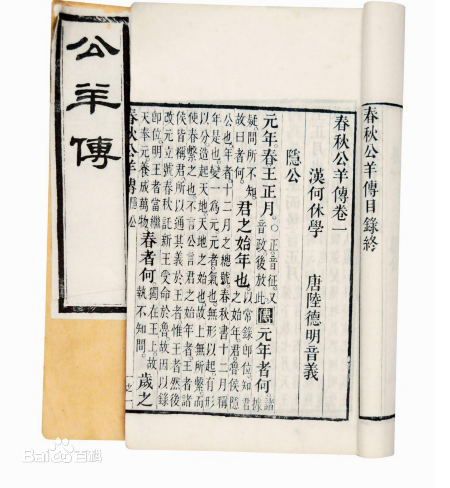 春秋公羊傳目錄終
春秋公羊傳卷一
漢何休學 唐陸德明音義
隱公
元年春王正月○正音征又音政後放此傳元年者何諸據
疑問所不知故曰者何君之始年也以常錄即位知君之始年君魯侯隱
公也年者十二月之總號春秋書十二月稱
年是也變一為元元者氣也無形以起有形
以分造起天地天地之始也故上無所繫而
使春繫之也不言公言君之始年者王者諸
侯皆稱君所以通其義於王者惟王者然後
改元立號春秋託新王受命於魯故因以錄
即位明王者當繼天奉元養成萬物春者何獨在王上故執不知問歲之
春秋公羊傳 隱公
公羊傳
Baidu百科